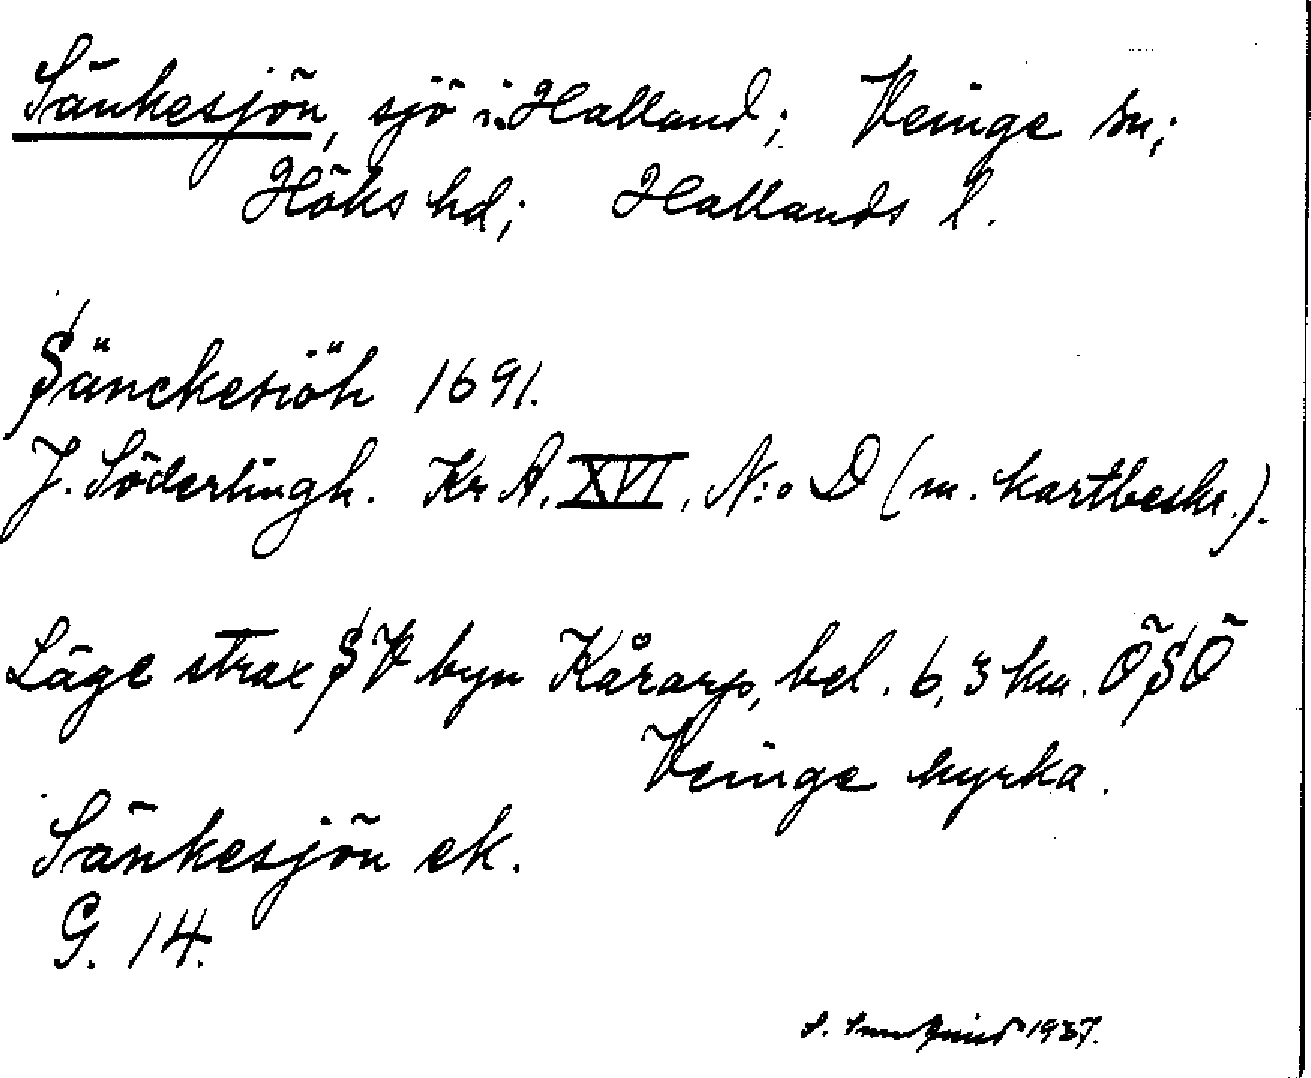 Sänkesjön, sjö i Halland; Veinge sn;
Höks hd; Hallands l.
Sänckesiöh 1691.
J. Söderlingh. Kr A. XVI, N:o D (m. kartbeskr.).
Läge strax SV byn Kårarp, bel. 6,3 km. ÖSÖ
Veinge kyrka.
Sänkesjön ek.
G. 14.
S. 1937.